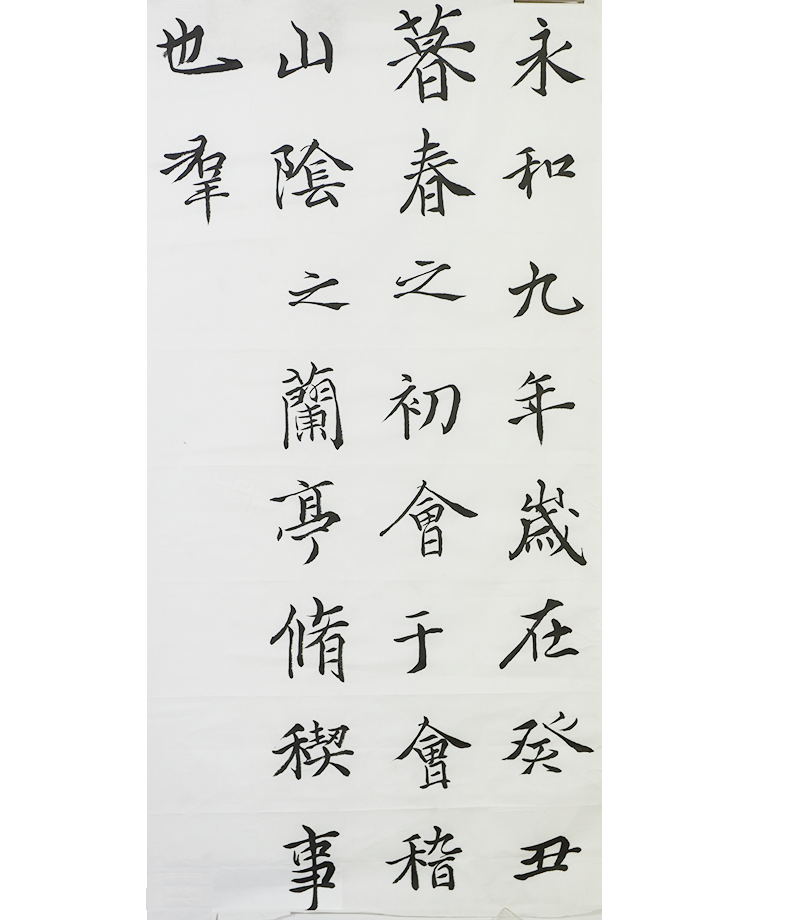 永和九年歲在癸丑
暮春之初會于會稽
山陰之蘭亭脩稧事
也羣